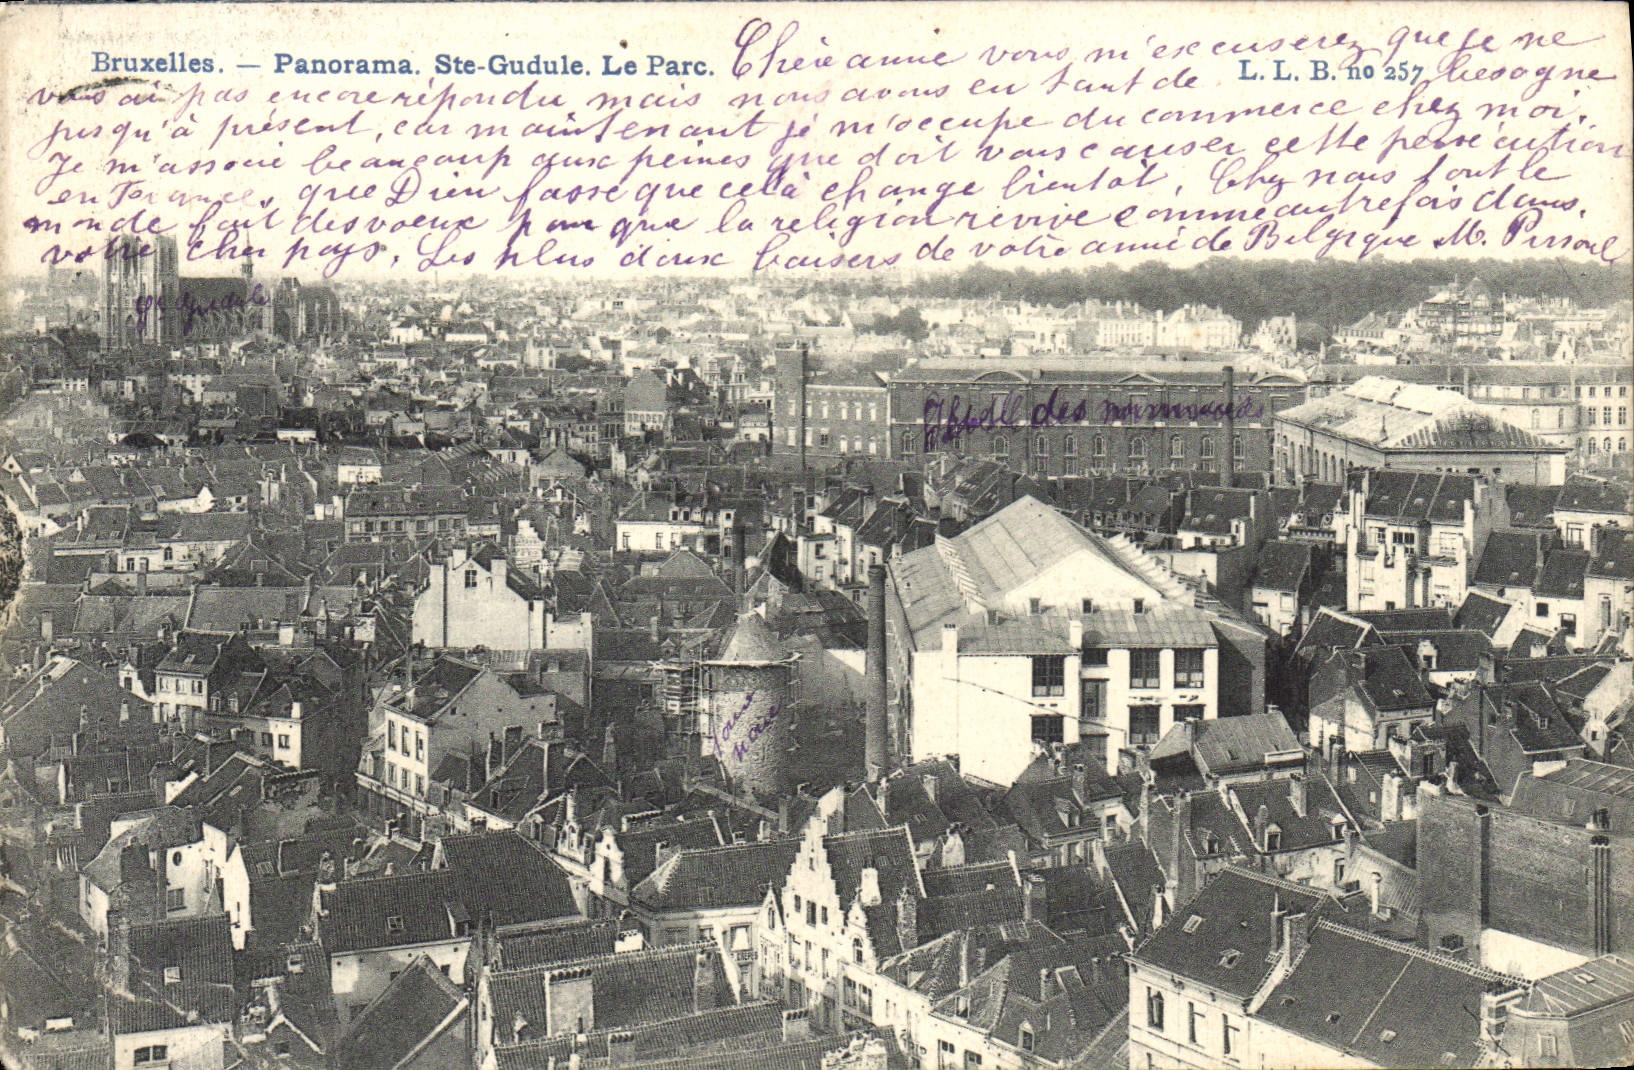 Bruxelles. — Panorama. Ste-Gudule. Le Parc.
L. L. B. no 257
Chère amie vous m'excuserez que je ne
vous ai pas encore répondu mais nous avons eu tant de besogne
jusqu'à présent, car maintenant je m'occupe du commerce chez moi.
Je m'associe beaucoup aux peines que doit vous causer cette persécution
en France, que Dieu fasse que celà change bientôt. Chez nous tout le
monde fait des voeux pour que la religion revive comme autrefois dans
votre cher pays. Les plus doux baisers de votre amie de Belgique M.
Ste Gudule
des
noire